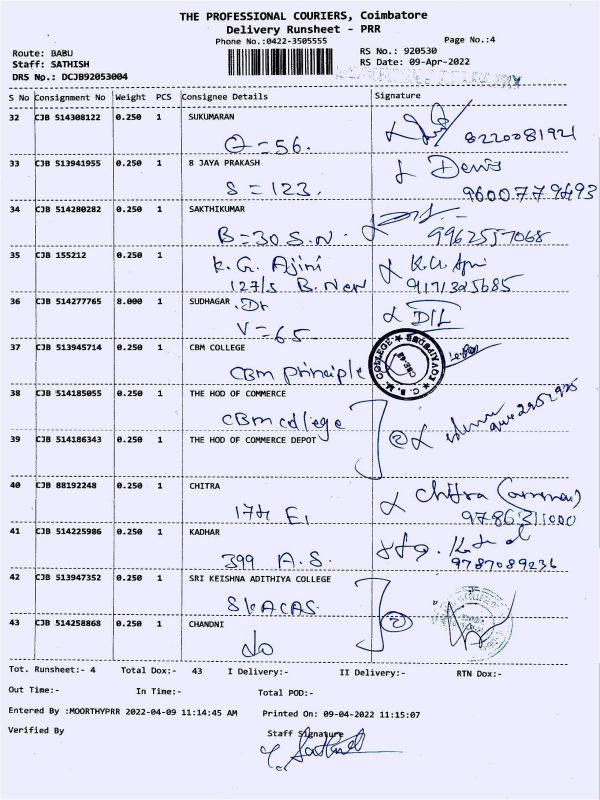 THE PROFESSIONAL COURIERS, Coimbatore
Delivery Runsheet - PRR
Phone No.:0422-3505555
Page No.:4
Route: BABU
RS No.: 920530
Staff: SATHISH
RS Date: 09-Apr-2022
DRS No.: DCJB92053004
S No Consignment No Weight PCS Consignee Details Signature
32 CJB 514308122 0.250 1 SUKUMARAN
=56. 8220081921
33 CJB 513941955 0.250 1 8 JAYA PRAKASH
S=123. 9600779493
34 CJB 514280282 0.250 1 SAKTHIKUMAR
B=30 S.N. 9962557068
35 CJB 155212 0.250 1 K. G. Ajini
127/5 B. Nar 9171325685
36 CJB 514277765 8.000 1 SUDHAGAR .Dr
V=65
37 CJB 513945714 0.250 1 CBM COLLEGE
CBM principle
C. B. M. COLLEGE
38 CJB 514185055 0.250 1 THE HOD OF COMMERCE
CBM college
39 CJB 514186343 0.250 1 THE HOD OF COMMERCE DEPOT
2
40 CJB 88192248 0.250 1 CHITRA
174 E1 Chitra
9786311000
41 CJB 514225986 0.250 1 KADHAR
399 A.S. 9787089236
42 CJB 513947352 0.250 1 SRI KEISHNA ADITHIYA COLLEGE
SKACAS
2
43 CJB 514258868 0.250 1 CHANDNI
do
Tot. Runsheet:- 4 Total Dox:- 43 I Delivery:- II Delivery:- RTN Dox:-
Out Time:- In Time:- Total POD:-
Entered By :MOORTHYPRR 2022-04-09 11:14:45 AM Printed On: 09-04-2022 11:15:07
Verified By Staff Signature